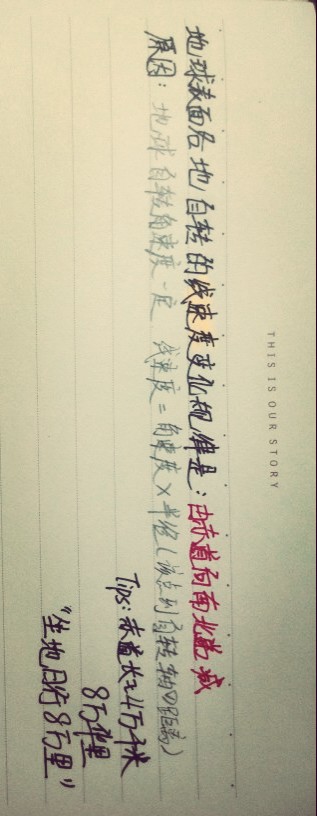 THIS IS OUR STORY
地球表面各地自转的线速度变化规律是：由赤道向南北递减
原因：地球自转角速度一定 线速度=角速度×半径(该点到自转轴の距离)
Tips:赤道长≈4万千米
8万华里
“坐地日行8万里”